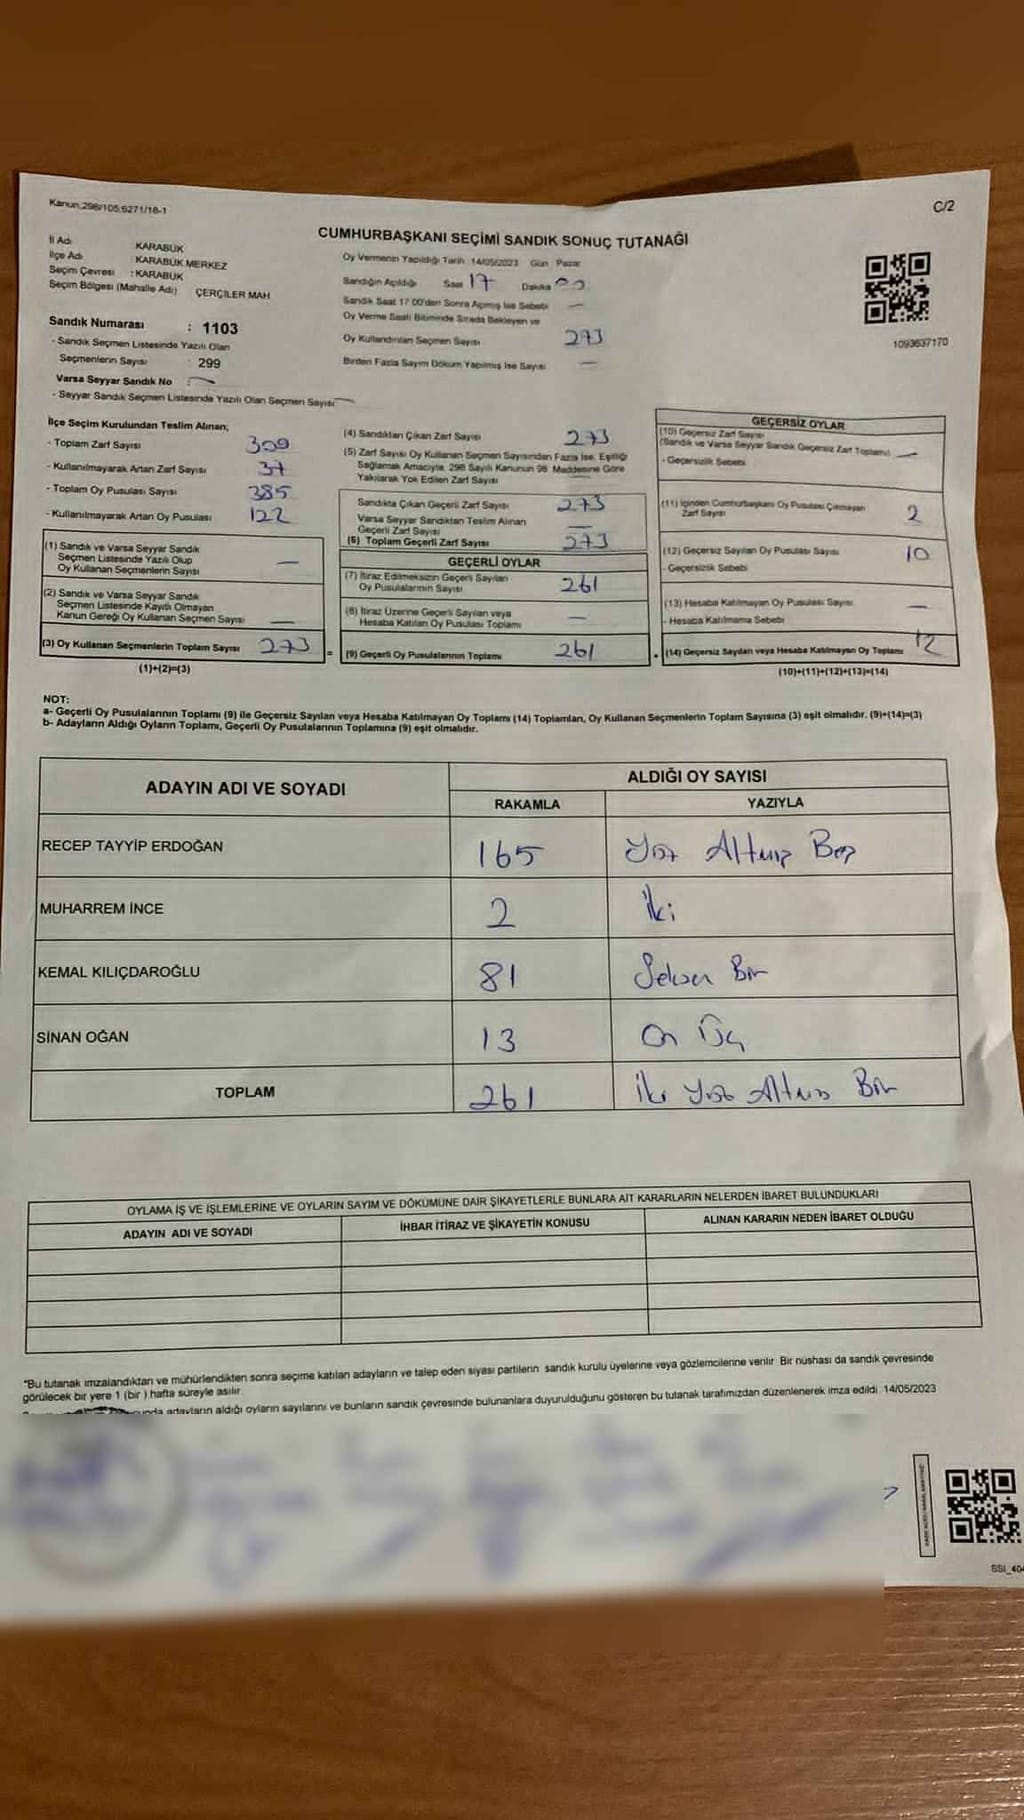 Kanun.298/105;6271/16-1
C/2
CUMHURBAŞKANI SEÇİMİ SANDIK SONUÇ TUTANAĞI
İl Adı KARABÜK
İlçe Adı : KARABÜK MERKEZ
Seçim Çevresi : KARABÜK
Seçim Bölgesi (Mahalle Adı) ÇERÇİLER MAH
Sandık Numarası : 1103
- Sandık Seçmen Listesinde Yazılı Olan
Seçmenlerin Sayısı : 299
Varsa Seyyar Sandık No : —
- Seyyar Sandık Seçmen Listesinde Yazılı Olan Seçmen Sayısı —
Oy Vermenin Yapıldığı Tarih 14/05/2023 Gün Pazar
Sandığın Açıldığı Saat 17 Dakika 00
Sandık Saat 17 00'den Sonra Açılmış İse Sebebi —
Oy Verme Saati Bitiminde Sırada Bekleyen ve
Oy Kullandırılan Seçmen Sayısı 273
Birden Fazla Sayım Döküm Yapılmış İse Sayısı —
1093637170
İlçe Seçim Kurulundan Teslim Alınan;
- Toplam Zarf Sayısı 309
- Kullanılmayarak Artan Zarf Sayısı 37
- Toplam Oy Pusulası Sayısı 385
- Kullanılmayarak Artan Oy Pusulası 122
(1) Sandık ve Varsa Seyyar Sandık
Seçmen Listesinde Yazılı Olup
Oy Kullanan Seçmenlerin Sayısı —
(2) Sandık ve Varsa Seyyar Sandık
Seçmen Listesinde Kayıtlı Olmayan
Kanun Gereği Oy Kullanan Seçmen Sayısı —
(3) Oy Kullanan Seçmenlerin Toplam Sayısı 273
(1)+(2)=(3)
(4) Sandıktan Çıkan Zarf Sayısı 273
(5) Zarf Sayısı Oy Kullanan Seçmen Sayısından Fazla İse, Eşitliği
Sağlamak Amacıyla, 298 Sayılı Kanunun 98 Maddesine Göre
Yakılarak Yok Edilen Zarf Sayısı —
Sandıkta Çıkan Geçerli Zarf Sayısı 273
Varsa Seyyar Sandıktan Teslim Alınan
Geçerli Zarf Sayısı —
(6) Toplam Geçerli Zarf Sayısı 273
GEÇERLİ OYLAR
(7) İtiraz Edilmeksizin Geçerli Sayılan
Oy Pusulalarının Sayısı 261
(8) İtiraz Üzerine Geçerli Sayılan veya
Hesaba Katılan Oy Pusulası Toplamı —
= (9) Geçerli Oy Pusulalarının Toplamı 261
GEÇERSİZ OYLAR
(10) Geçersiz Zarf Sayısı
(Sandık ve Varsa Seyyar Sandık Geçersiz Zarf Toplamı) —
- Geçersizlik Sebebi
(11) İçinden Cumhurbaşkanı Oy Pusulası Çıkmayan
Zarf Sayısı 2
(12) Geçersiz Sayılan Oy Pusulası Sayısı 10
- Geçersizlik Sebebi
(13) Hesaba Katılmayan Oy Pusulası Sayısı —
- Hesaba Katılmama Sebebi
+ (14) Geçersiz Sayılan veya Hesaba Katılmayan Oy Toplamı 12
(10)+(11)+(12)+(13)=(14)
NOT:
a- Geçerli Oy Pusulalarının Toplamı (9) ile Geçersiz Sayılan veya Hesaba Katılmayan Oy Toplamı (14) Toplamları, Oy Kullanan Seçmenlerin Toplam Sayısına (3) eşit olmalıdır. (9)+(14)=(3)
b- Adayların Aldığı Oyların Toplamı, Geçerli Oy Pusulalarının Toplamına (9) eşit olmalıdır.
ADAYIN ADI VE SOYADI ALDIĞI OY SAYISI
RAKAMLA YAZIYLA
RECEP TAYYİP ERDOĞAN 165 Yüz Altmış Beş
MUHARREM İNCE 2 İki
KEMAL KILIÇDAROĞLU 81 Seksen Bir
SİNAN OĞAN 13 On Üç
TOPLAM 261 İki Yüz Altmış Bir
OYLAMA İŞ VE İŞLEMLERİNE VE OYLARIN SAYIM VE DÖKÜMÜNE DAİR ŞİKAYETLERLE BUNLARA AİT KARARLARIN NELERDEN İBARET BULUNDUKLARI
ADAYIN ADI VE SOYADI İHBAR İTİRAZ VE ŞİKAYETİN KONUSU ALINAN KARARIN NEDEN İBARET OLDUĞU
"Bu tutanak imzalandıktan ve mühürlendikten sonra seçime katılan adayların ve talep eden siyasi partilerin sandık kurulu üyelerine veya gözlemcilerine verilir Bir nüshası da sandık çevresinde
görülecek bir yere 1 (bir ) hafta süreyle asılır
adayların aldığı oyların sayılarını ve bunların sandık çevresinde bulunanlara duyurulduğunu gösteren bu tutanak tarafımızdan düzenlenerek imza edildi. 14/05/2023